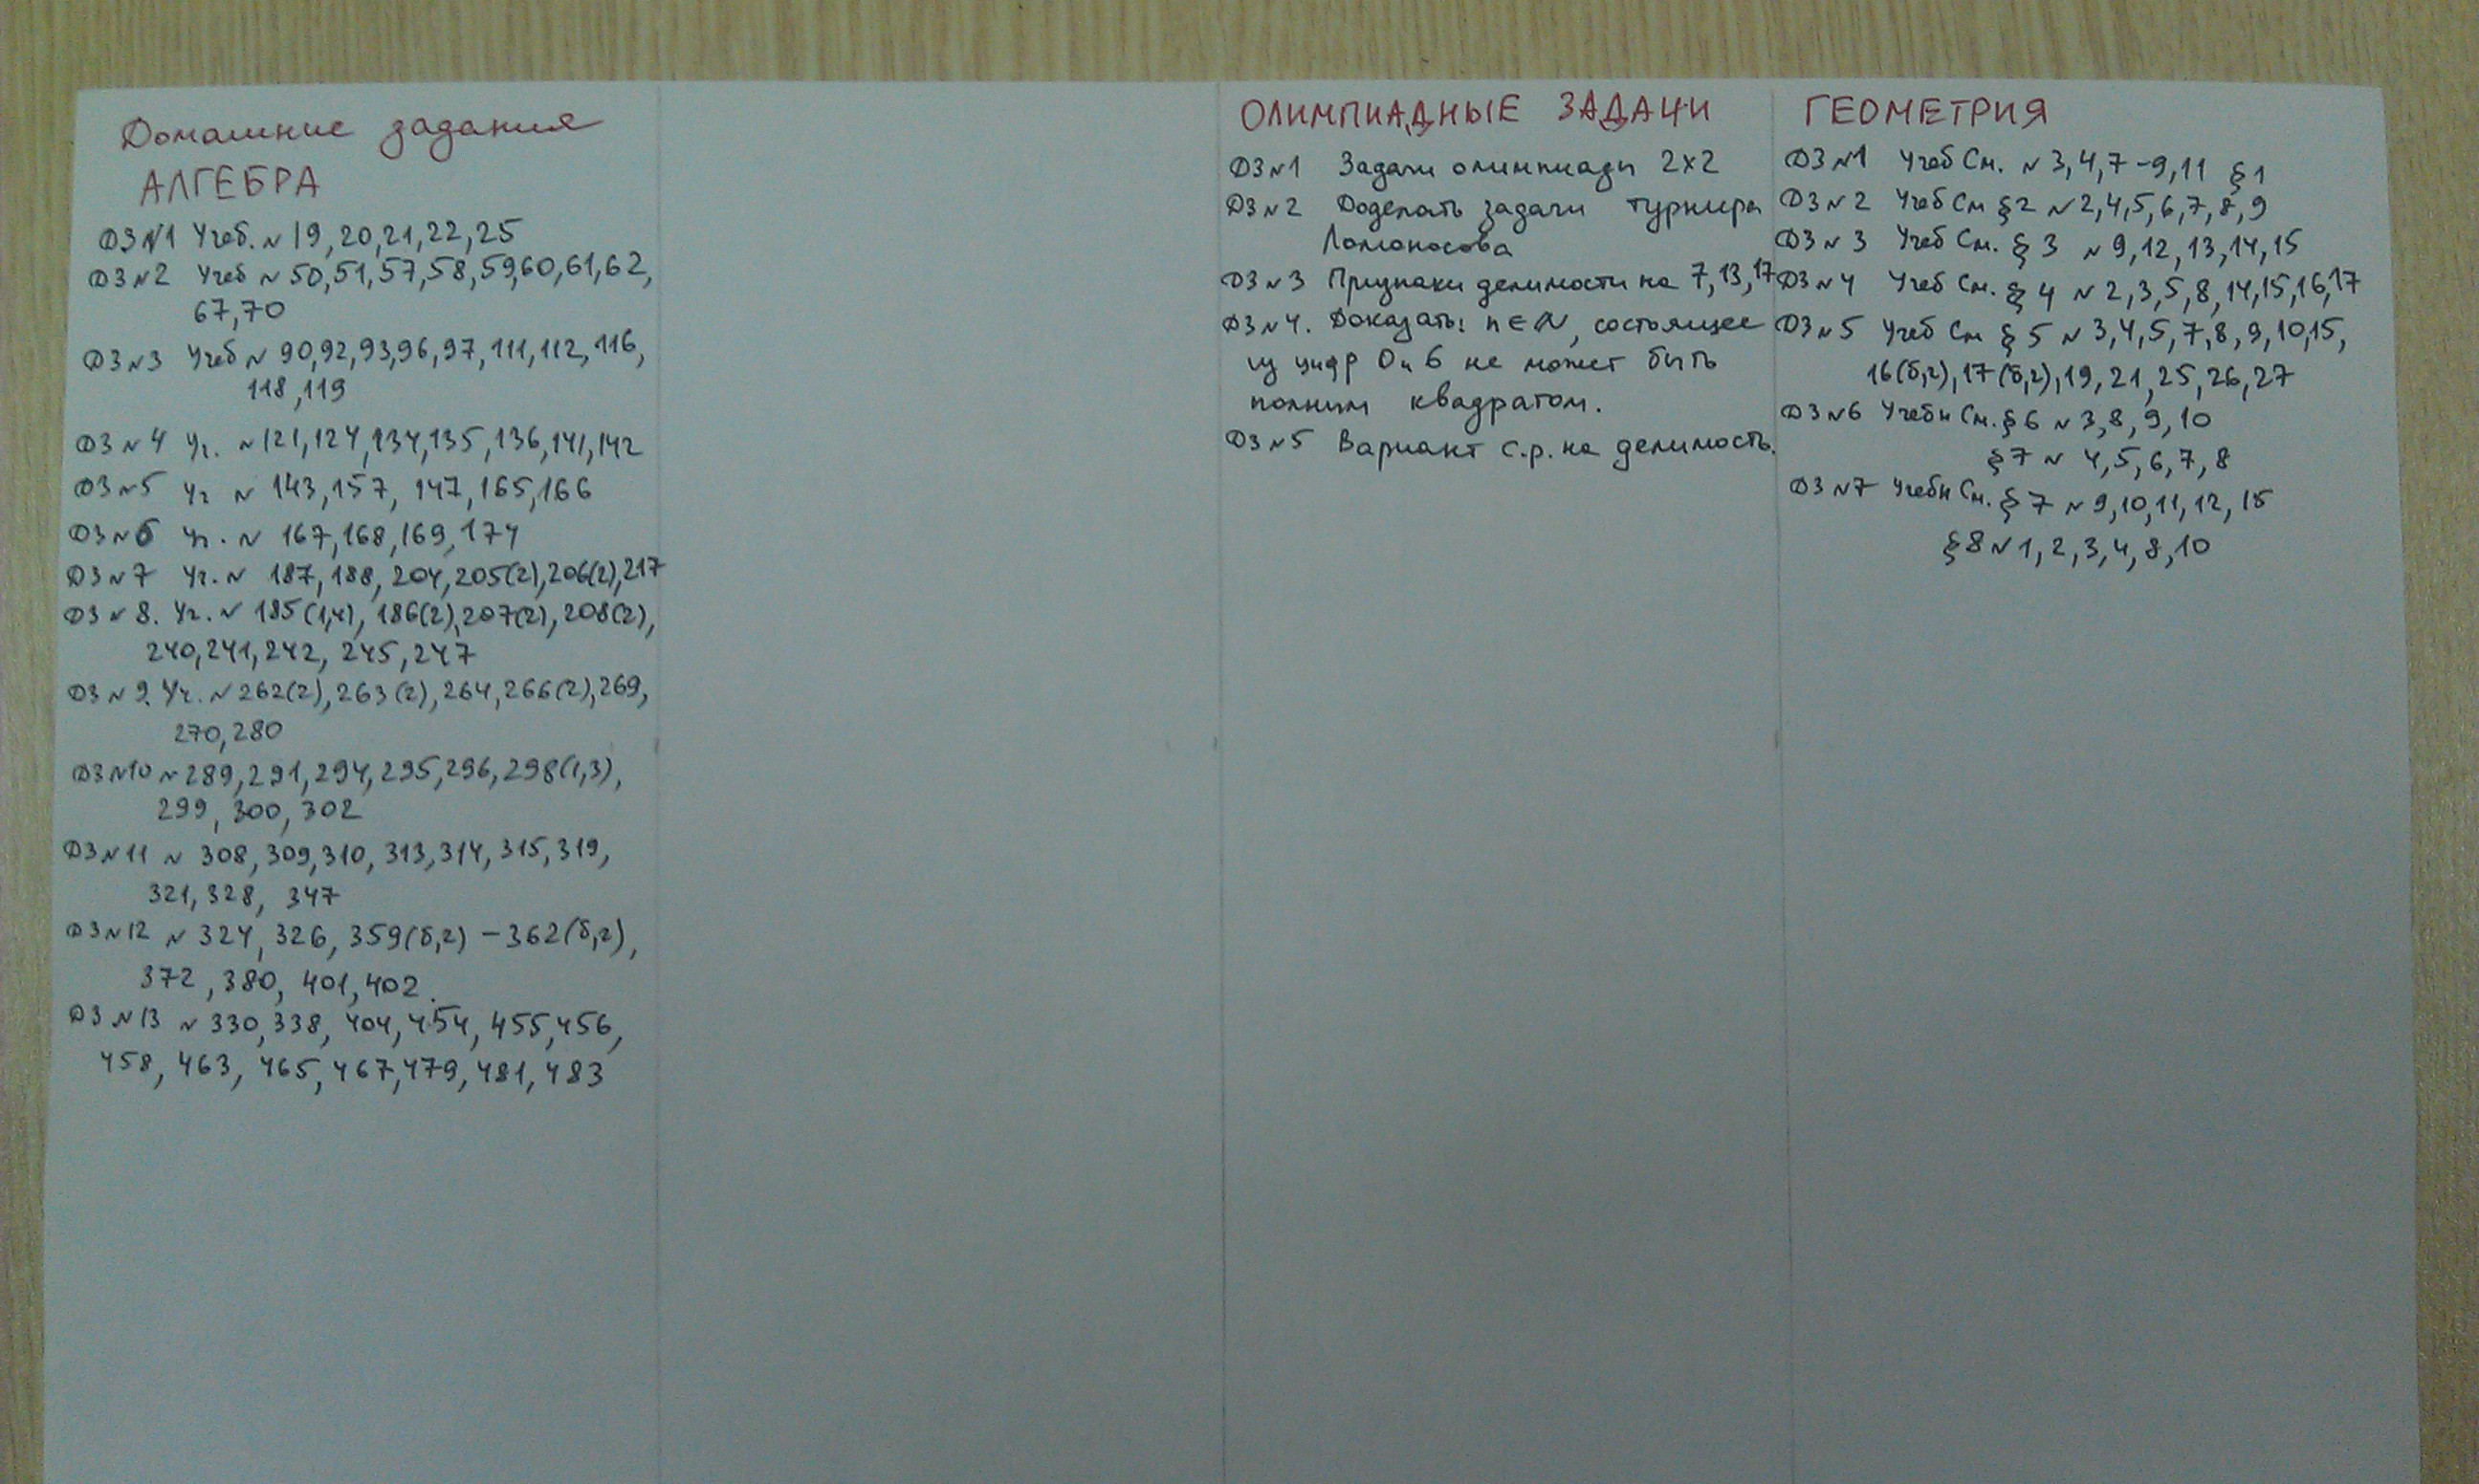 Домашние задания
АЛГЕБРА
ДЗ №1 Учеб. № 19, 20, 21, 22, 25
ДЗ №2 Учеб № 50, 51, 57, 58, 59, 60, 61, 62,
67, 70
ДЗ №3 Учеб № 90, 92, 93, 96, 97, 111, 112, 116,
118, 119
ДЗ №4 Уч. № 121, 124, 134, 135, 136, 141, 142
ДЗ №5 Уч № 143, 157, 147, 165, 166
ДЗ №6 Уч. № 167, 168, 169, 174
ДЗ №7 Уч. № 187, 188, 204, 205(2), 206(2), 217
ДЗ №8. Уч. № 185(1,4), 186(2), 207(2), 208(2),
240, 241, 242, 245, 247
ДЗ №9. Уч. № 262(2), 263(2), 264, 266(2), 269,
270, 280
ДЗ №10 № 289, 291, 294, 295, 296, 298(1,3),
299, 300, 302
ДЗ №11 № 308, 309, 310, 313, 314, 315, 319,
321, 328, 347
ДЗ №12 № 324, 326, 359(б,г) - 362(б,г),
372, 380, 401, 402.
ДЗ №13 № 330, 338, 404, 454, 455, 456,
458, 463, 465, 467, 479, 481, 483
ОЛИМПИАДНЫЕ ЗАДАЧИ
ДЗ №1 Задачи олимпиады 2х2
ДЗ №2 Доделать задачи турнира
Ломоносова
ДЗ №3 Признаки делимости на 7, 13, 17
ДЗ №4. Доказать: n ∈ N, состоящее
из цифр 0 и 6 не может быть
полным квадратом.
ДЗ №5 Вариант с.р. на делимость.
ГЕОМЕТРИЯ
ДЗ №1 Учеб См. № 3, 4, 7-9, 11 §1
ДЗ №2 Учеб См §2 № 2, 4, 5, 6, 7, 8, 9
ДЗ №3 Учеб См. §3 № 9, 12, 13, 14, 15
ДЗ №4 Учеб См. §4 № 2, 3, 5, 8, 14, 15, 16, 17
ДЗ №5 Учеб См §5 № 3, 4, 5, 7, 8, 9, 10, 15,
16(б,г), 17(б,г), 19, 21, 25, 26, 27
ДЗ №6 Учебн См. §6 № 3, 8, 9, 10
§7 № 4, 5, 6, 7, 8
ДЗ №7 Учебн См. §7 № 9, 10, 11, 12, 15
§8 № 1, 2, 3, 4, 8, 10